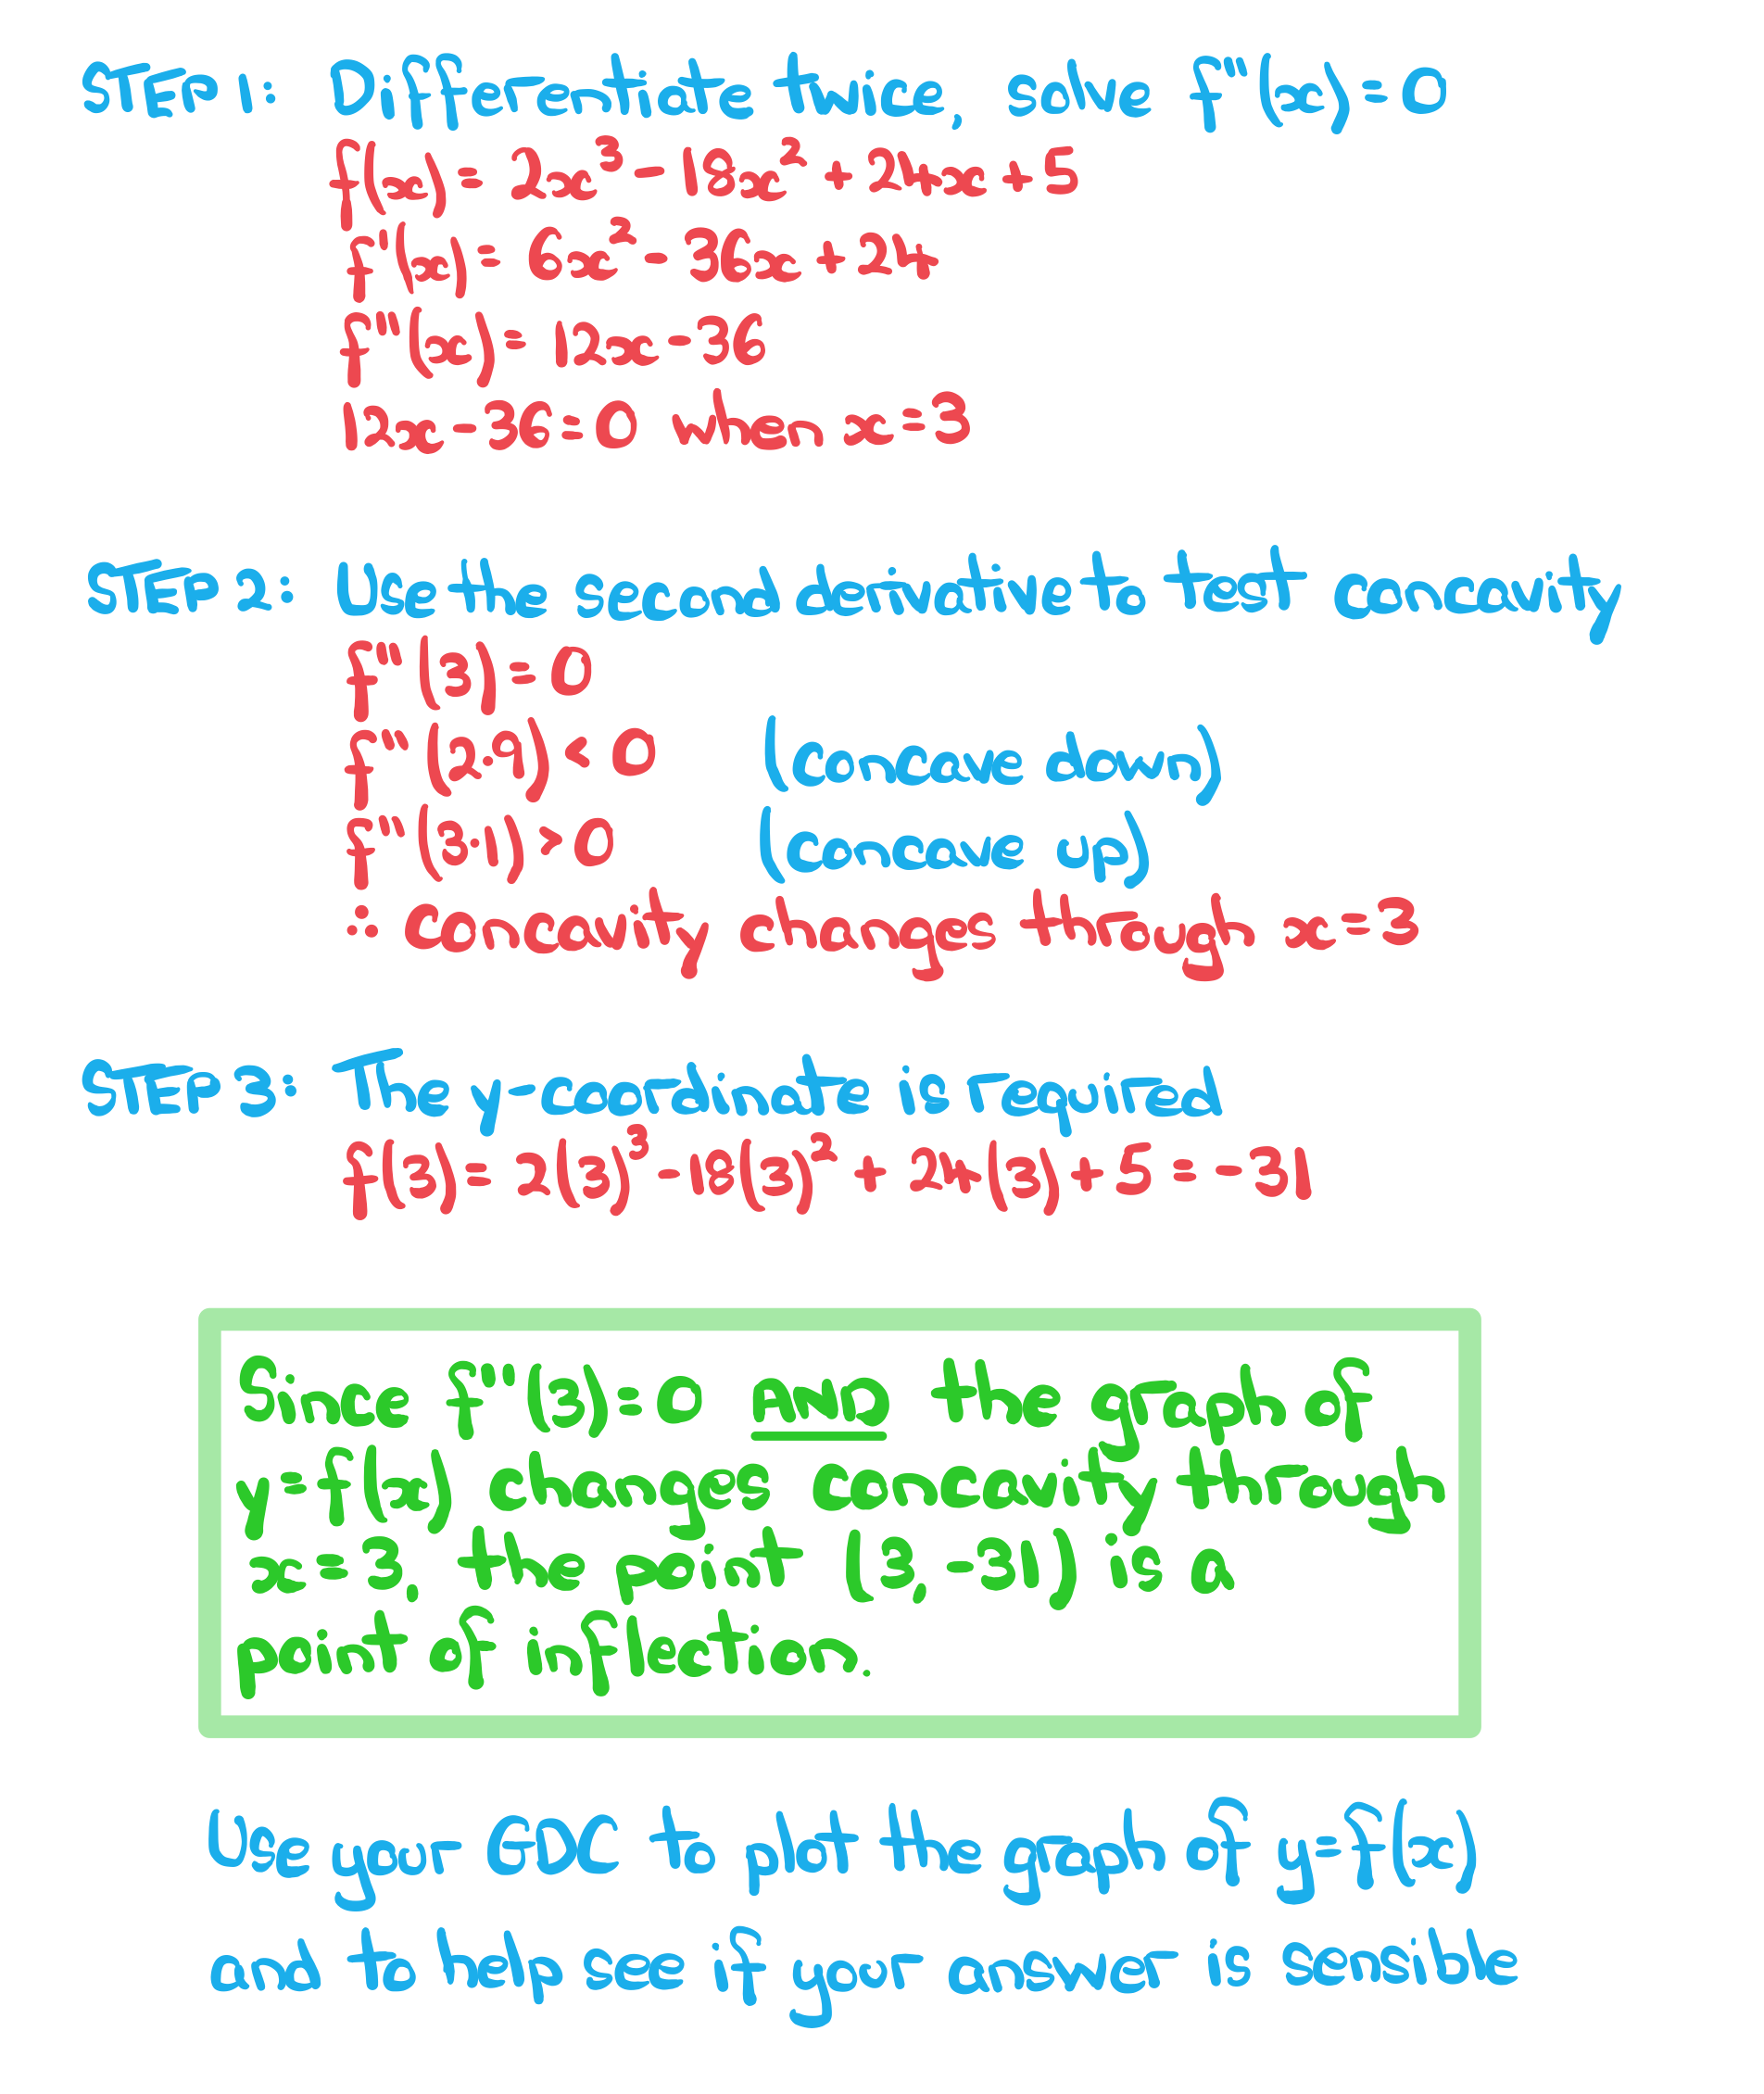 STEP 1: Differentiate twice, solve f''(x)=0
f(x)= 2x³ - 18x² + 24x + 5
f'(x)= 6x² - 36x + 24
f''(x)= 12x - 36
12x - 36 = 0 when x = 3
STEP 2: Use the second derivative to test concavity
f''(3)=0
f''(2·9) < 0 (concave down)
f''(3·1) > 0 (concave up)
∴ concavity changes through x=3
STEP 3: The y-coordinate is required
f(3)= 2(3)³ - 18(3)² + 24(3) + 5 = -31
Since f''(3)=0 AND the graph of
y=f(x) changes concavity through
x=3, the point (3,-31) is a
point of inflection.
Use your GDC to plot the graph of y=f(x)
and to help see if your answer is sensible